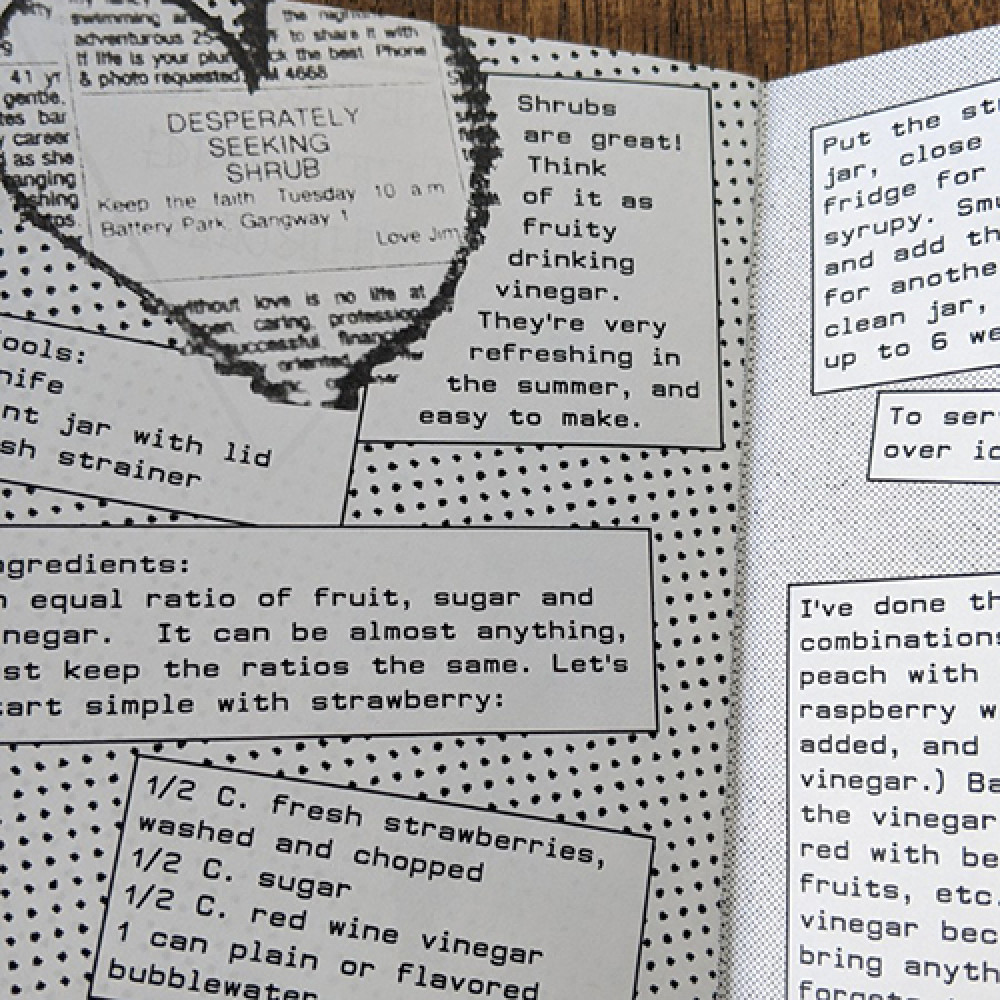 swimming
the
adventurous 25-
to share it with
If life is your
ck the best Phone
& photo requested
M 4668
41 yr
gentle.
tes bar
career
as she
anging
shing
DESPERATELY
SEEKING
SHRUB
Keep the faith Tuesday 10 am
Battery Park Gangway 1
Love Jim
without love is no life at
open, caring, profession
successful, financ
oriented
Shrubs
are great!
Think
of it as
fruity
drinking
vinegar.
They're very
refreshing in
the summer, and
easy to make.
ools:
nife
nt jar with lid
sh strainer
ngredients:
n equal ratio of fruit, sugar and
negar. It can be almost anything,
st keep the ratios the same. Let's
tart simple with strawberry:
1/2 C. fresh strawberries,
washed and chopped
1/2 C. sugar
1/2 C. red wine vinegar
1 can plain or flavored
bubblewater
Put the st
jar, close
fridge for
syrupy. Smu
and add th
for anothe
clean jar,
up to 6 we
To ser
over ic
I've done th
combinations
peach with
raspberry w
added, and
vinegar.) Ba
the vinegar
red with be
fruits, etc.
vinegar bec
bring anyth
forget